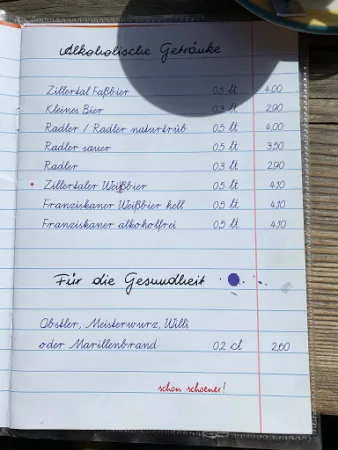 Alkoholische Getränke
Zillertal Faßbier 0,5 lt 4,00
Kleines Bier 0,3 lt 2,90
Radler / Radler naturtrüb 0,5 lt 4,00
Radler sauer 0,5 lt 3,50
Radler 0,3 lt 2,90
Zillertaler Weißbier 0,5 lt 4,10
Franziskaner Weißbier hell 0,5 lt 4,10
Franziskaner alkoholfrei 0,5 lt 4,10
Für die Gesundheit
Obstler, Meisterwurz, Willi
oder Marillenbrand 0,2 cl 2,60
schon schoener!